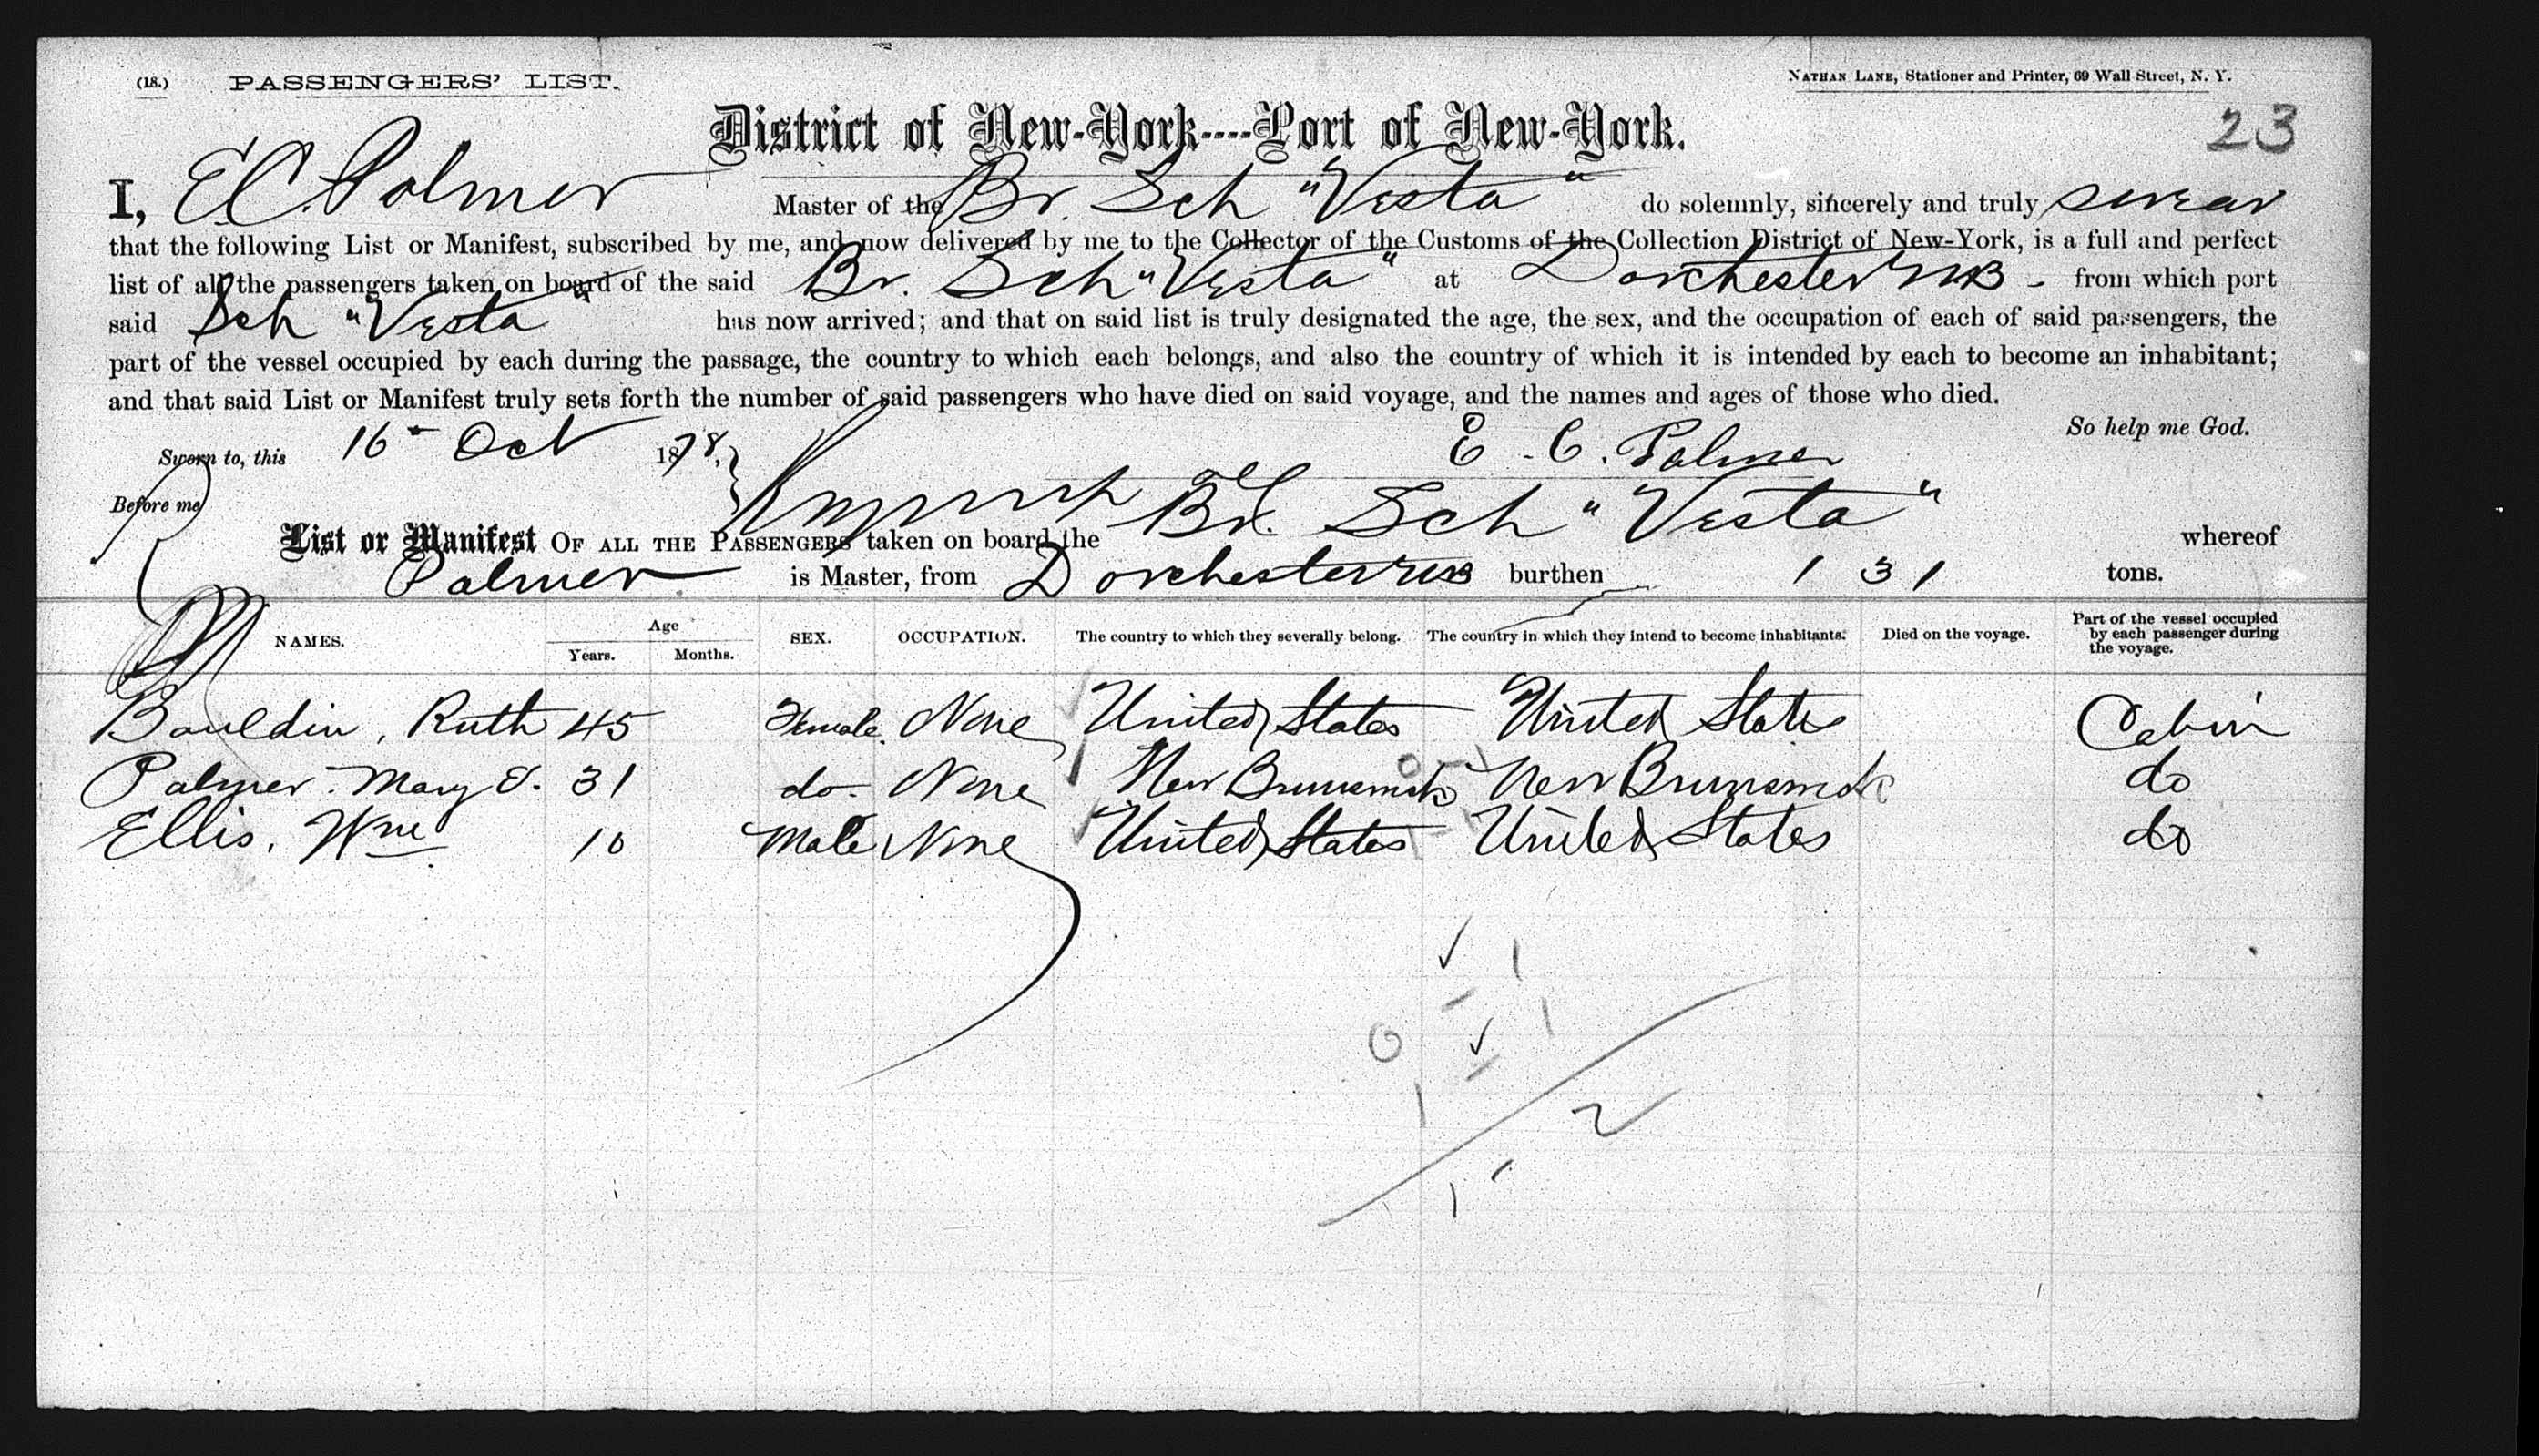 (18.) PASSENGERS' LIST. NATHAN LANE, Stationer and Printer, 69 Wall Street, N. Y.
District of New-York----Port of New-York. 23
I, E C. Palmer Master of the Br. Sch "Vesta" do solemnly, sincerely and truly swear
that the following List or Manifest, subscribed by me, and now delivered by me to the Collector of the Customs of the Collection District of New-York, is a full and perfect
list of all the passengers taken on board of the said Br. Sch "Vesta" at Dorchester NB - from which port
said Sch "Vesta" has now arrived; and that on said list is truly designated the age, the sex, and the occupation of each of said passengers, the
part of the vessel occupied by each during the passage, the country to which each belongs, and also the country of which it is intended by each to become an inhabitant;
and that said List or Manifest truly sets forth the number of said passengers who have died on said voyage, and the names and ages of those who died.
So help me God.
Sworn to, this 16 Oct 1878, E. C. Palmer
Before me
List or Manifest OF ALL THE PASSENGERS taken on board the Br. Sch "Vesta" whereof
Palmer is Master, from Dorchester NB burthen 131 tons.
NAMES. Age Years. Months. SEX. OCCUPATION. The country to which they severally belong. The country in which they intend to become inhabitants. Died on the voyage. Part of the vessel occupied by each passenger during the voyage.
Bouldin, Ruth 45 Female. None United States United State Cabin
Palmer. Mary E. 31 do. None New Brunswick 0-1 New Brunswick do
Ellis, Wm 10 Male None United States 1-1 United States do
1
0 1
1
2
1